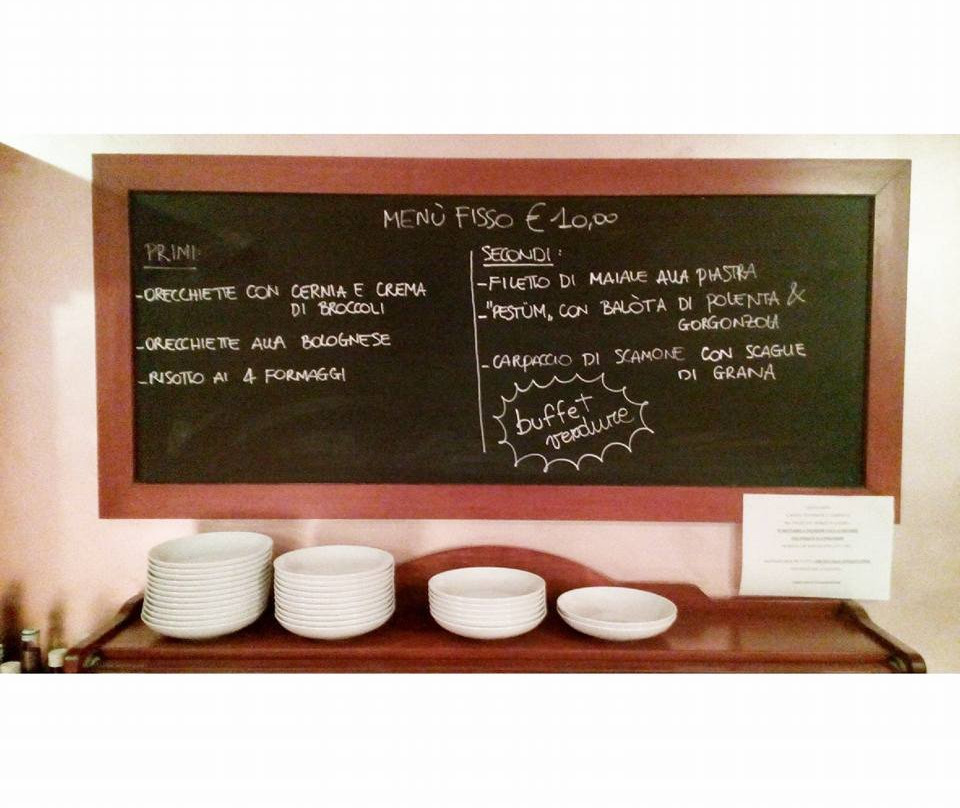 MENÙ FISSO € 10,00
PRIMI:
-ORECCHIETTE CON CERNIA E CREMA
DI BROCCOLI
-ORECCHIETTE ALLA BOLOGNESE
-RISOTTO AI 4 FORMAGGI
SECONDI:
-FILETTO DI MAIALE ALLA PIASTRA
-"PESTÜM„ CON BALÒTA DI POLENTA &
GORGONZOLA
-CARPACCIO DI SCAMONE CON SCAGLIE
DI GRANA
buffet
verdure